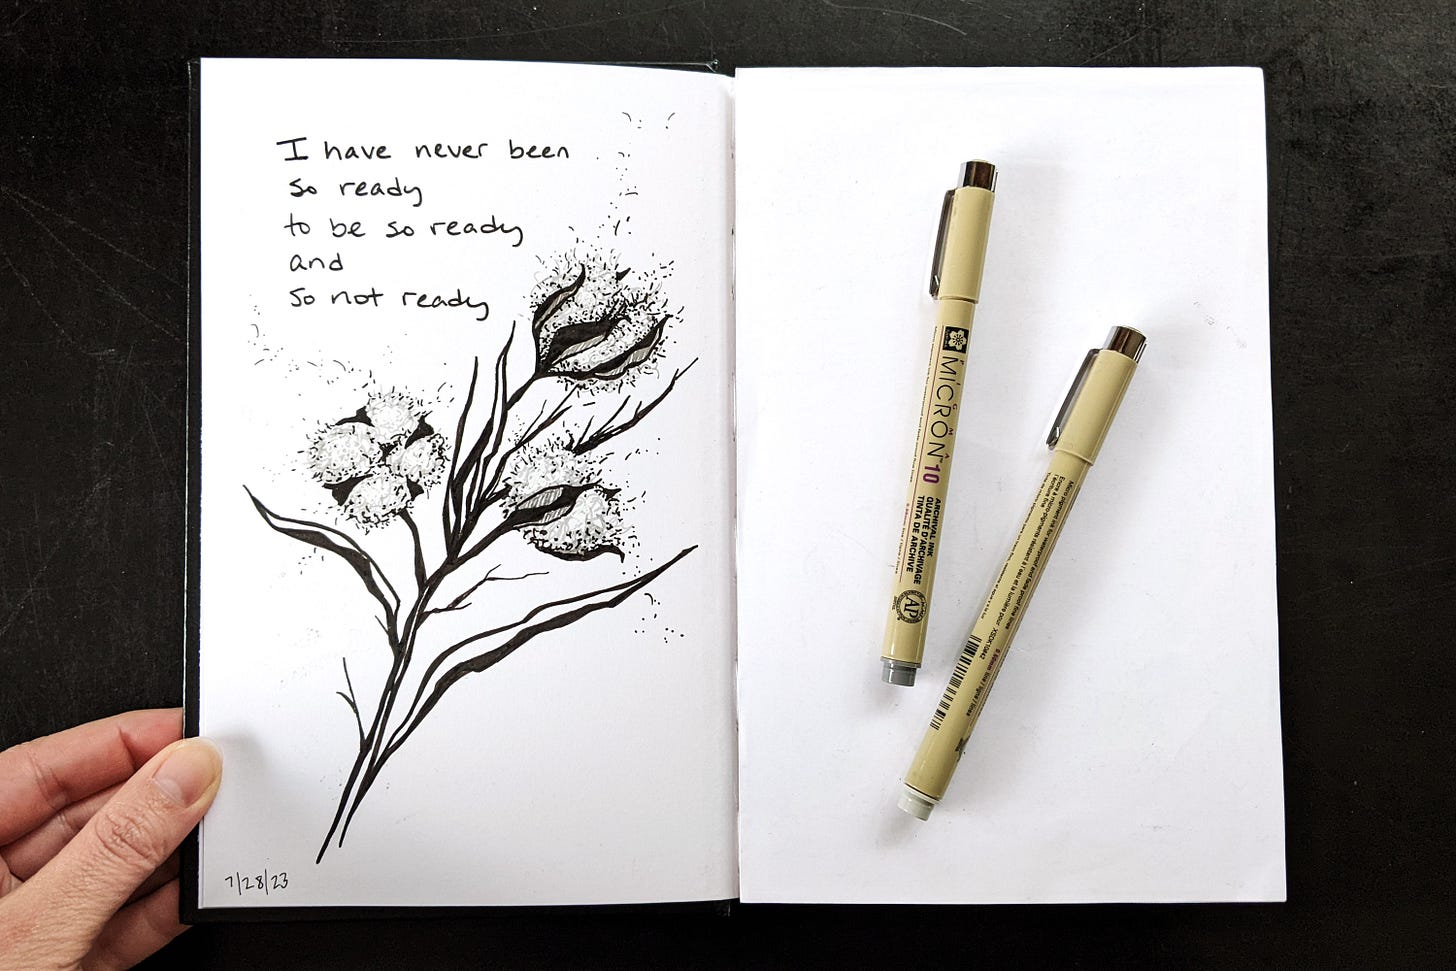 I have never been
so ready
to be so ready
and
so not ready
7/28/23
MICRON 10
ARCHIVAL INK
QUALITÉ D'ARCHIVAGE
TINTA DE ARCHIVE
AP